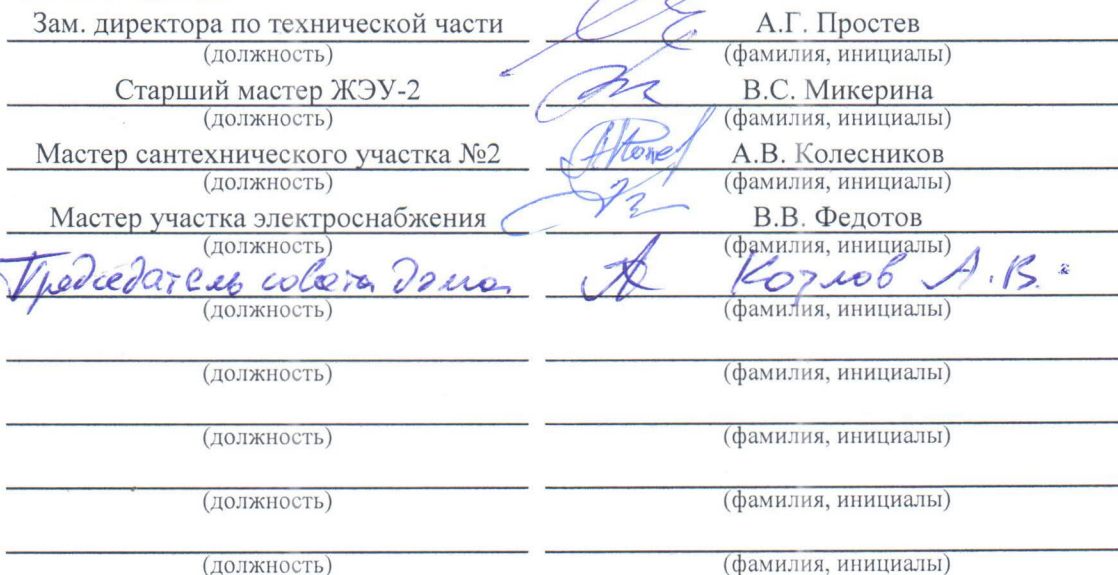 Зам. директора по технической части А.Г. Простев
(должность) (фамилия, инициалы)
Старший мастер ЖЭУ-2 В.С. Микерина
(должность) (фамилия, инициалы)
Мастер сантехнического участка №2 А.В. Колесников
(должность) (фамилия, инициалы)
Мастер участка электроснабжения В.В. Федотов
(должность) (фамилия, инициалы)
Председатель совета дома Козлов А.В.
(должность) (фамилия, инициалы)
(должность) (фамилия, инициалы)
(должность) (фамилия, инициалы)
(должность) (фамилия, инициалы)
(должность) (фамилия, инициалы)